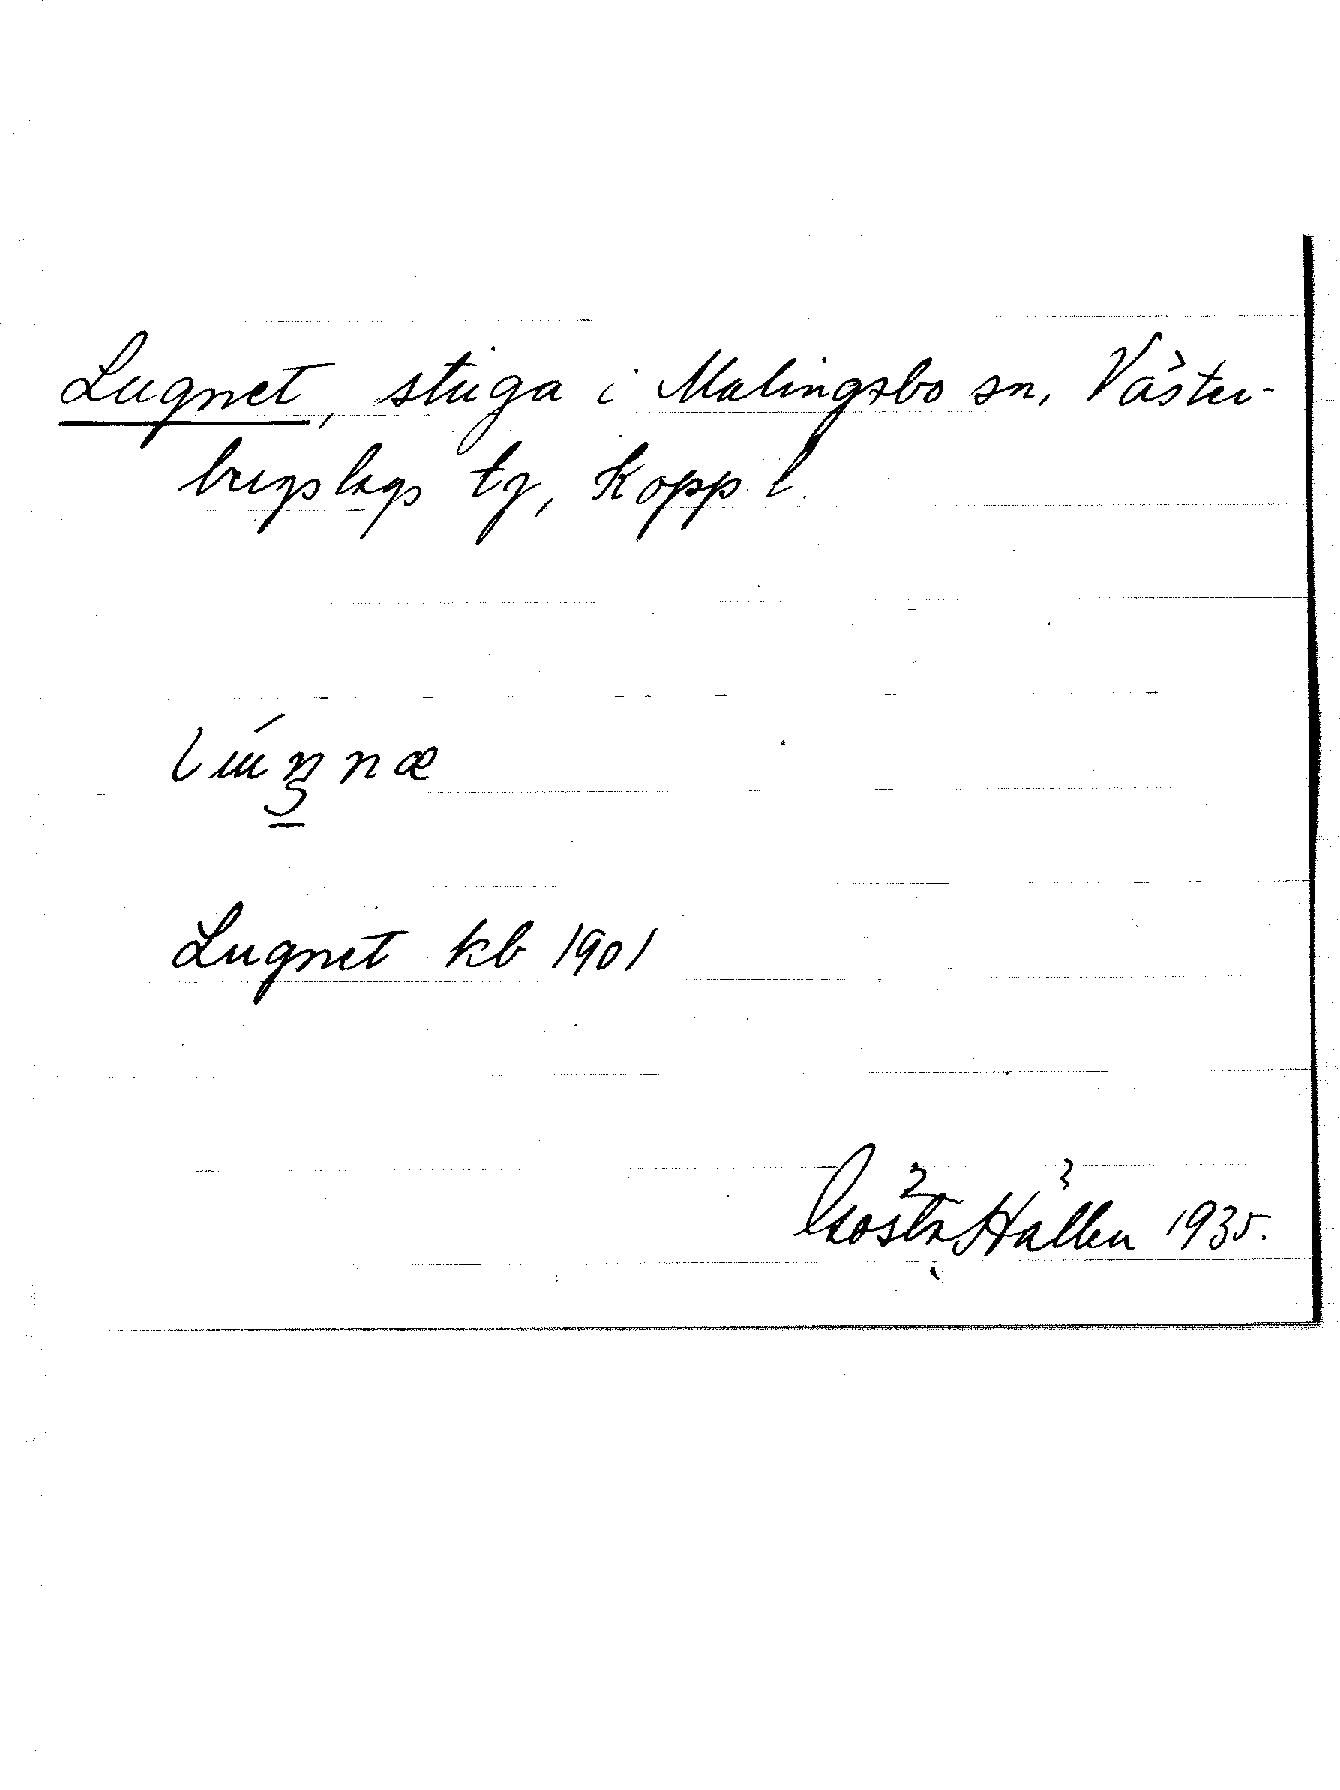 Lugnet, stuga i Malingsbo sn, Väster-
bergslags tg, Kopp. l.
Lugnet kb 1901
Gösta Hallén 1935.